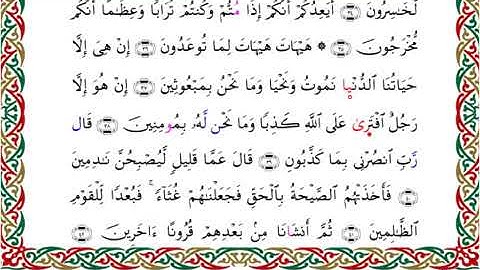 لَّخَٰسِرُونَ ٣٤ أَيَعِدُكُمۡ أَنَّكُمۡ إِذَا مُتُّمۡ وَكُنتُمۡ تُرَابٗا وَعِظَٰمًا أَنَّكُم
مُّخۡرَجُونَ ٣٥ ۞ هَيۡهَاتَ هَيۡهَاتَ لِمَا تُوعَدُونَ ٣٦ إِنۡ هِيَ إِلَّا
حَيَاتُنَا ٱلدُّنۡيَا نَمُوتُ وَنَحۡيَا وَمَا نَحۡنُ بِمَبۡعُوثِينَ ٣٧ إِنۡ هُوَ إِلَّا
رَجُلٌ ٱفۡتَرَىٰ عَلَى ٱللَّهِ كَذِبٗا وَمَا نَحۡن لَّهُۥ بِمُومِنِينَ ٣٨ قَال
رَّبِّ ٱنصُرۡنِي بِمَا كَذَّبُونِ ٣٩ قَالَ عَمَّا قَلِيلٖ لَّيُصۡبِحُنَّ نَٰدِمِينَ
٤٠ فَأَخَذَتۡهُمُ ٱلصَّيۡحَةُ بِٱلۡحَقِّ فَجَعَلۡنَٰهُمۡ غُثَآءٗۚ فَبُعۡدٗا لِّلۡقَوۡمِ
ٱلظَّٰلِمِينَ ٤١ ثُمَّ أَنشَانَا مِنۢ بَعۡدِهِمۡ قُرُونًا ءَاخَرِينَ ٤٢